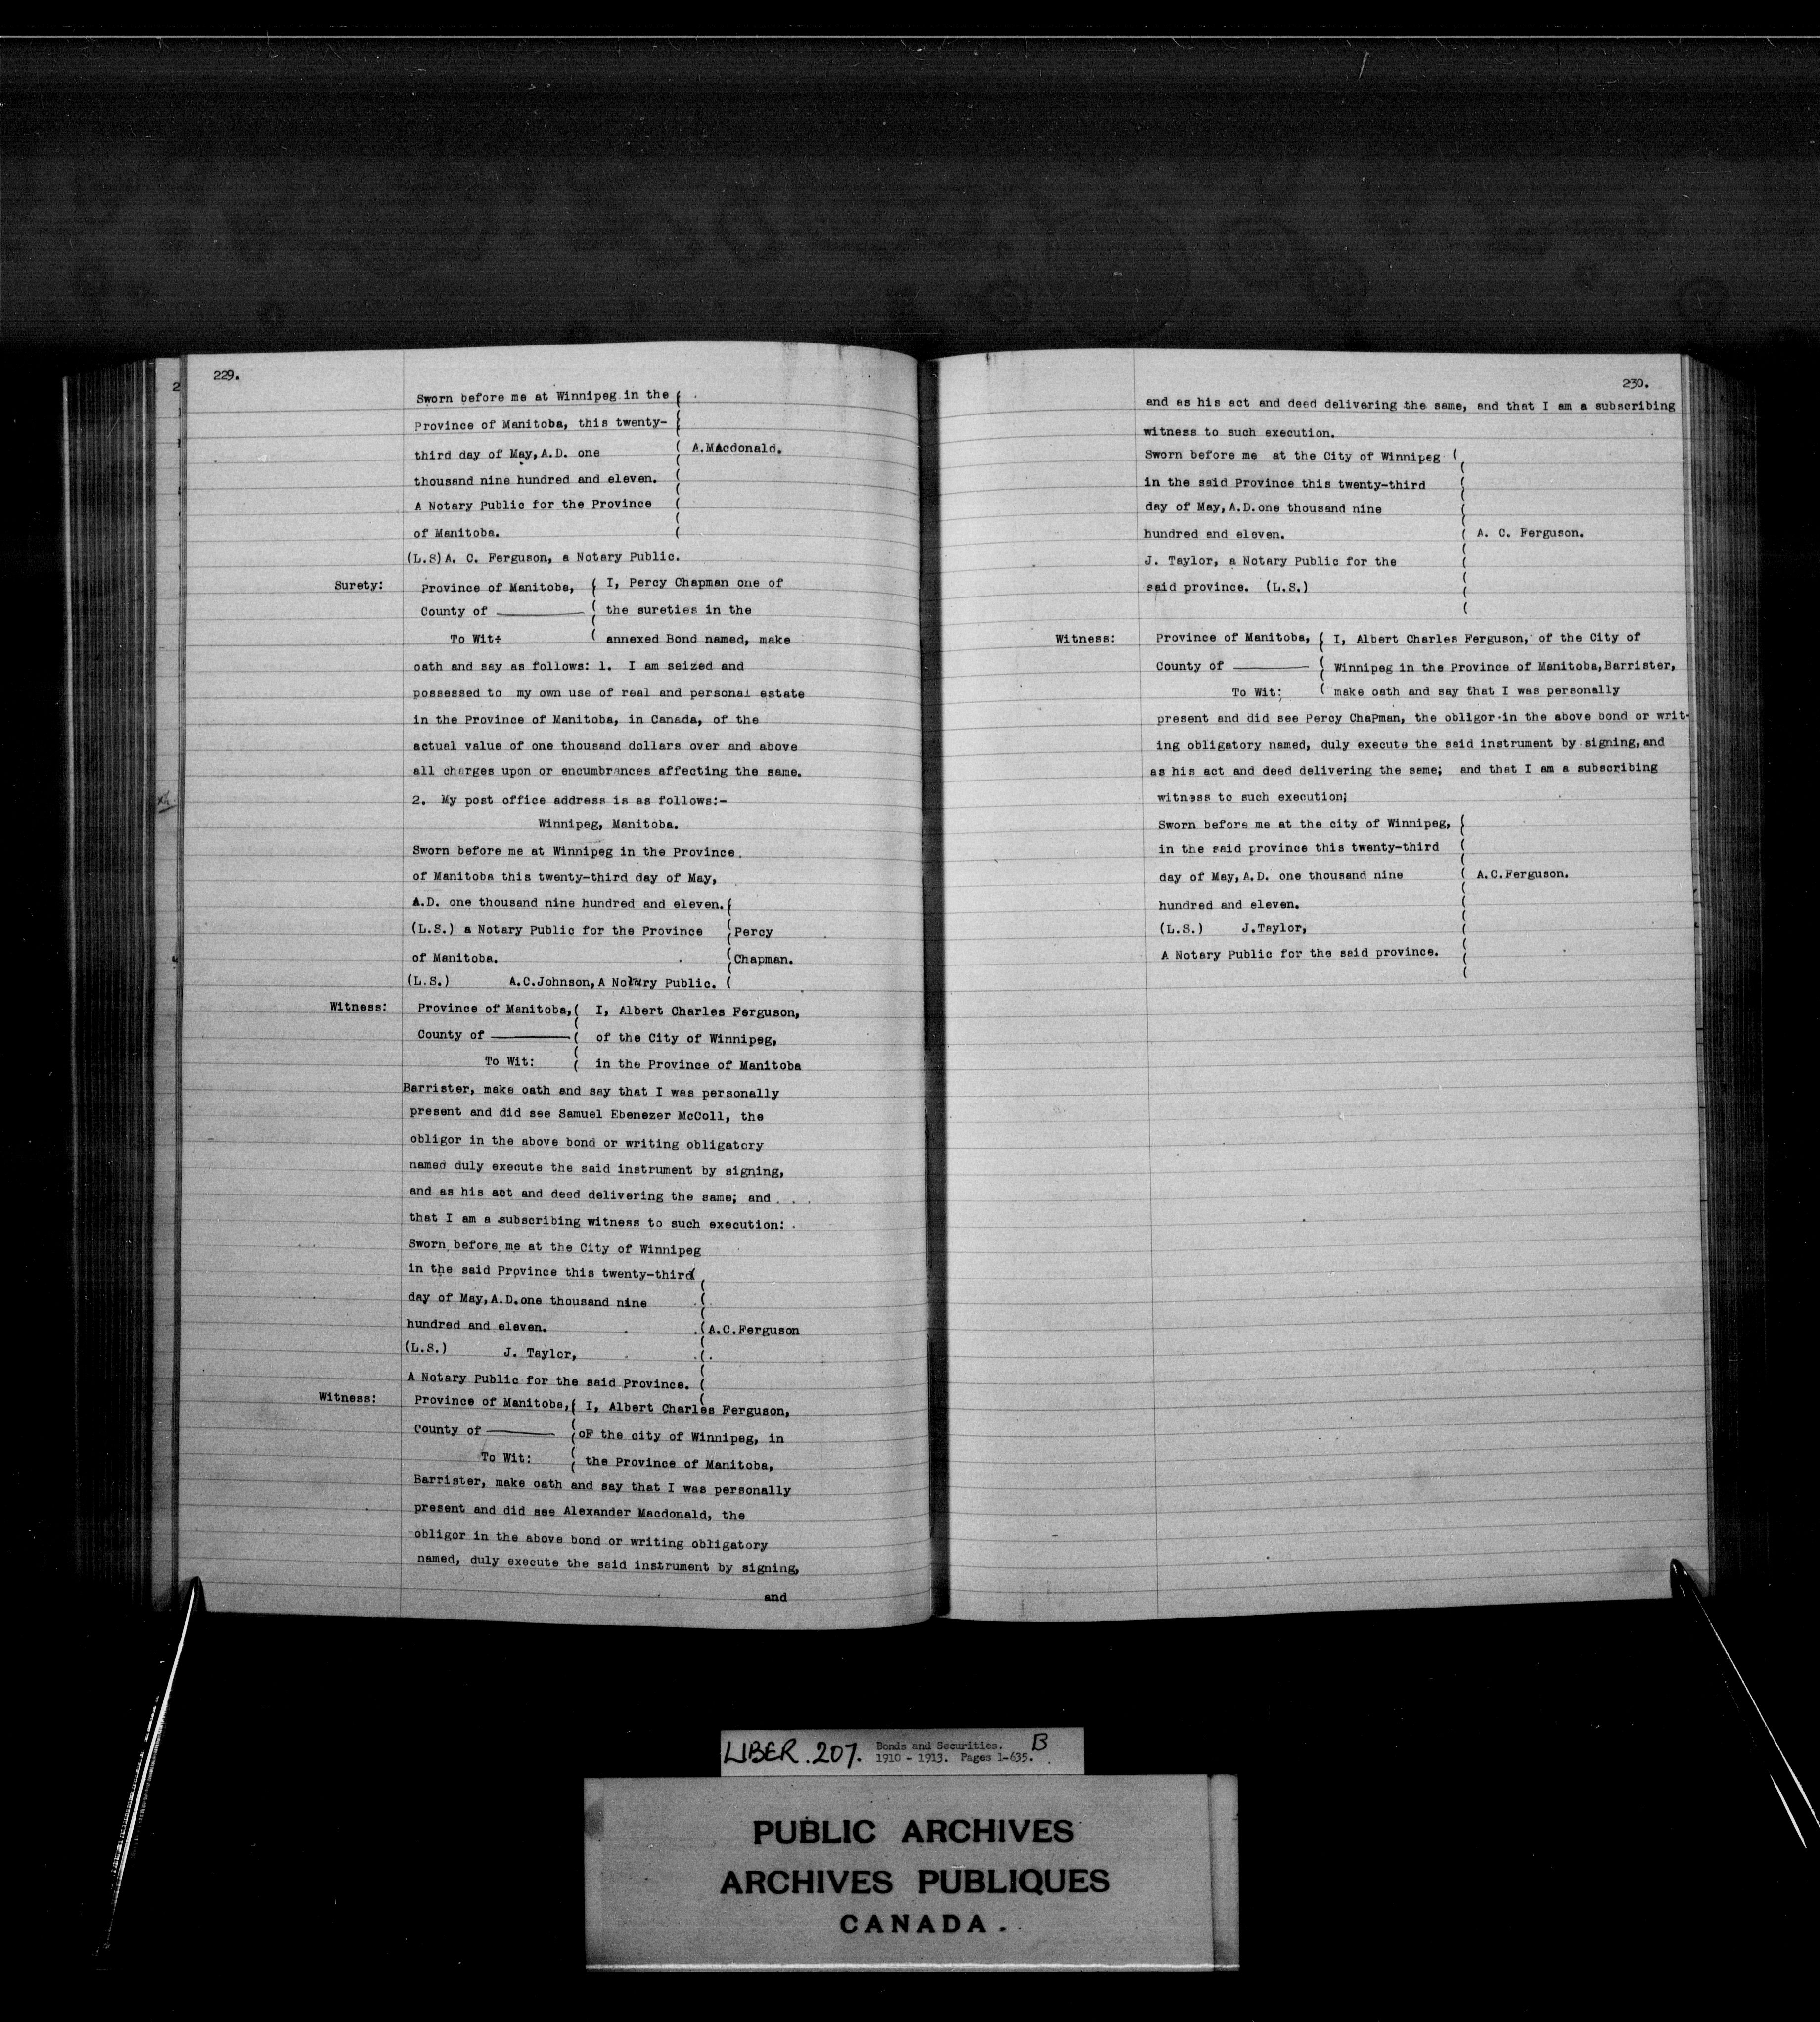 229.
Sworn before me at Winnipeg in the
Province of Manitoba, this twenty-
third day of May, A.D. one ( A.MAcdonald.
thousand nine hundred and eleven.
A Notary Public for the Province
of Manitoba.
(L.S) A. C. Ferguson, a Notary Public.
Surety: Province of Manitoba, ( I, Percy Chapman one of
County of ——— ( the sureties in the
To Wit: ( annexed Bond named, make
oath and say as follows: 1. I am seized and
possessed to my own use of real and personal estate
in the Province of Manitoba, in Canada, of the
actual value of one thousand dollars over and above
all charges upon or encumbrances affecting the same.
2. My post office address is as follows:-
Winnipeg, Manitoba.
Sworn before me at Winnipeg in the Province
of Manitoba this twenty-third day of May,
A.D. one thousand nine hundred and eleven.(
(L.S.) a Notary Public for the Province (Percy
of Manitoba. (Chapman.
(L.S.) A.C.Johnson, A Notary Public. (
Witness: Province of Manitoba,( I, Albert Charles Ferguson,
County of ———( of the City of Winnipeg,
To Wit: ( in the Province of Manitoba
Barrister, make oath and say that I was personally
present and did see Samuel Ebenezer McColl, the
obligor in the above bond or writing obligatory
named duly execute the said instrument by signing,
and as his act and deed delivering the same; and
that I am a subscribing witness to such execution:
Sworn before me at the City of Winnipeg
in the said Province this twenty-third(
day of May, A.D. one thousand nine (
hundred and eleven. (A.C.Ferguson
(L.S.) J. Taylor, (
A Notary Public for the said Province. (
Witness: Province of Manitoba,( I, Albert Charles Ferguson,
County of ——— (oF the city of Winnipeg, in
To Wit: ( the Province of Manitoba,
Barrister, make oath and say that I was personally
present and did see Alexander Macdonald, the
obligor in the above bond or writing obligatory
named, duly execute the said instrument by signing,
and
230.
and as his act and deed delivering the same, and that I am a subscribing
witness to such execution.
Sworn before me at the City of Winnipeg (
in the said Province this twenty-third (
day of May, A.D. one thousand nine (
hundred and eleven. ( A. C. Ferguson.
J. Taylor, a Notary Public for the (
said province. (L.S.) (
Witness: Province of Manitoba, ( I, Albert Charles Ferguson, of the City of
County of ——— ( Winnipeg in the Province of Manitoba, Barrister,
To Wit: ( make oath and say that I was personally
present and did see Percy ChaPman, the obligor in the above bond or writ-
ing obligatory named, duly execute the said instrument by signing, and
as his act and deed delivering the same; and that I am a subscribing
witness to such execution;
Sworn before me at the city of Winnipeg, (
in the said province this twenty-third (
day of May, A.D. one thousand nine ( A.C.Ferguson.
hundred and eleven. (
(L.S.) J.Taylor, (
A Notary Public for the said province. (
LIBER. 207. Bonds and Securities. B
1910 - 1913. Pages 1-635.
PUBLIC ARCHIVES
ARCHIVES PUBLIQUES
CANADA.